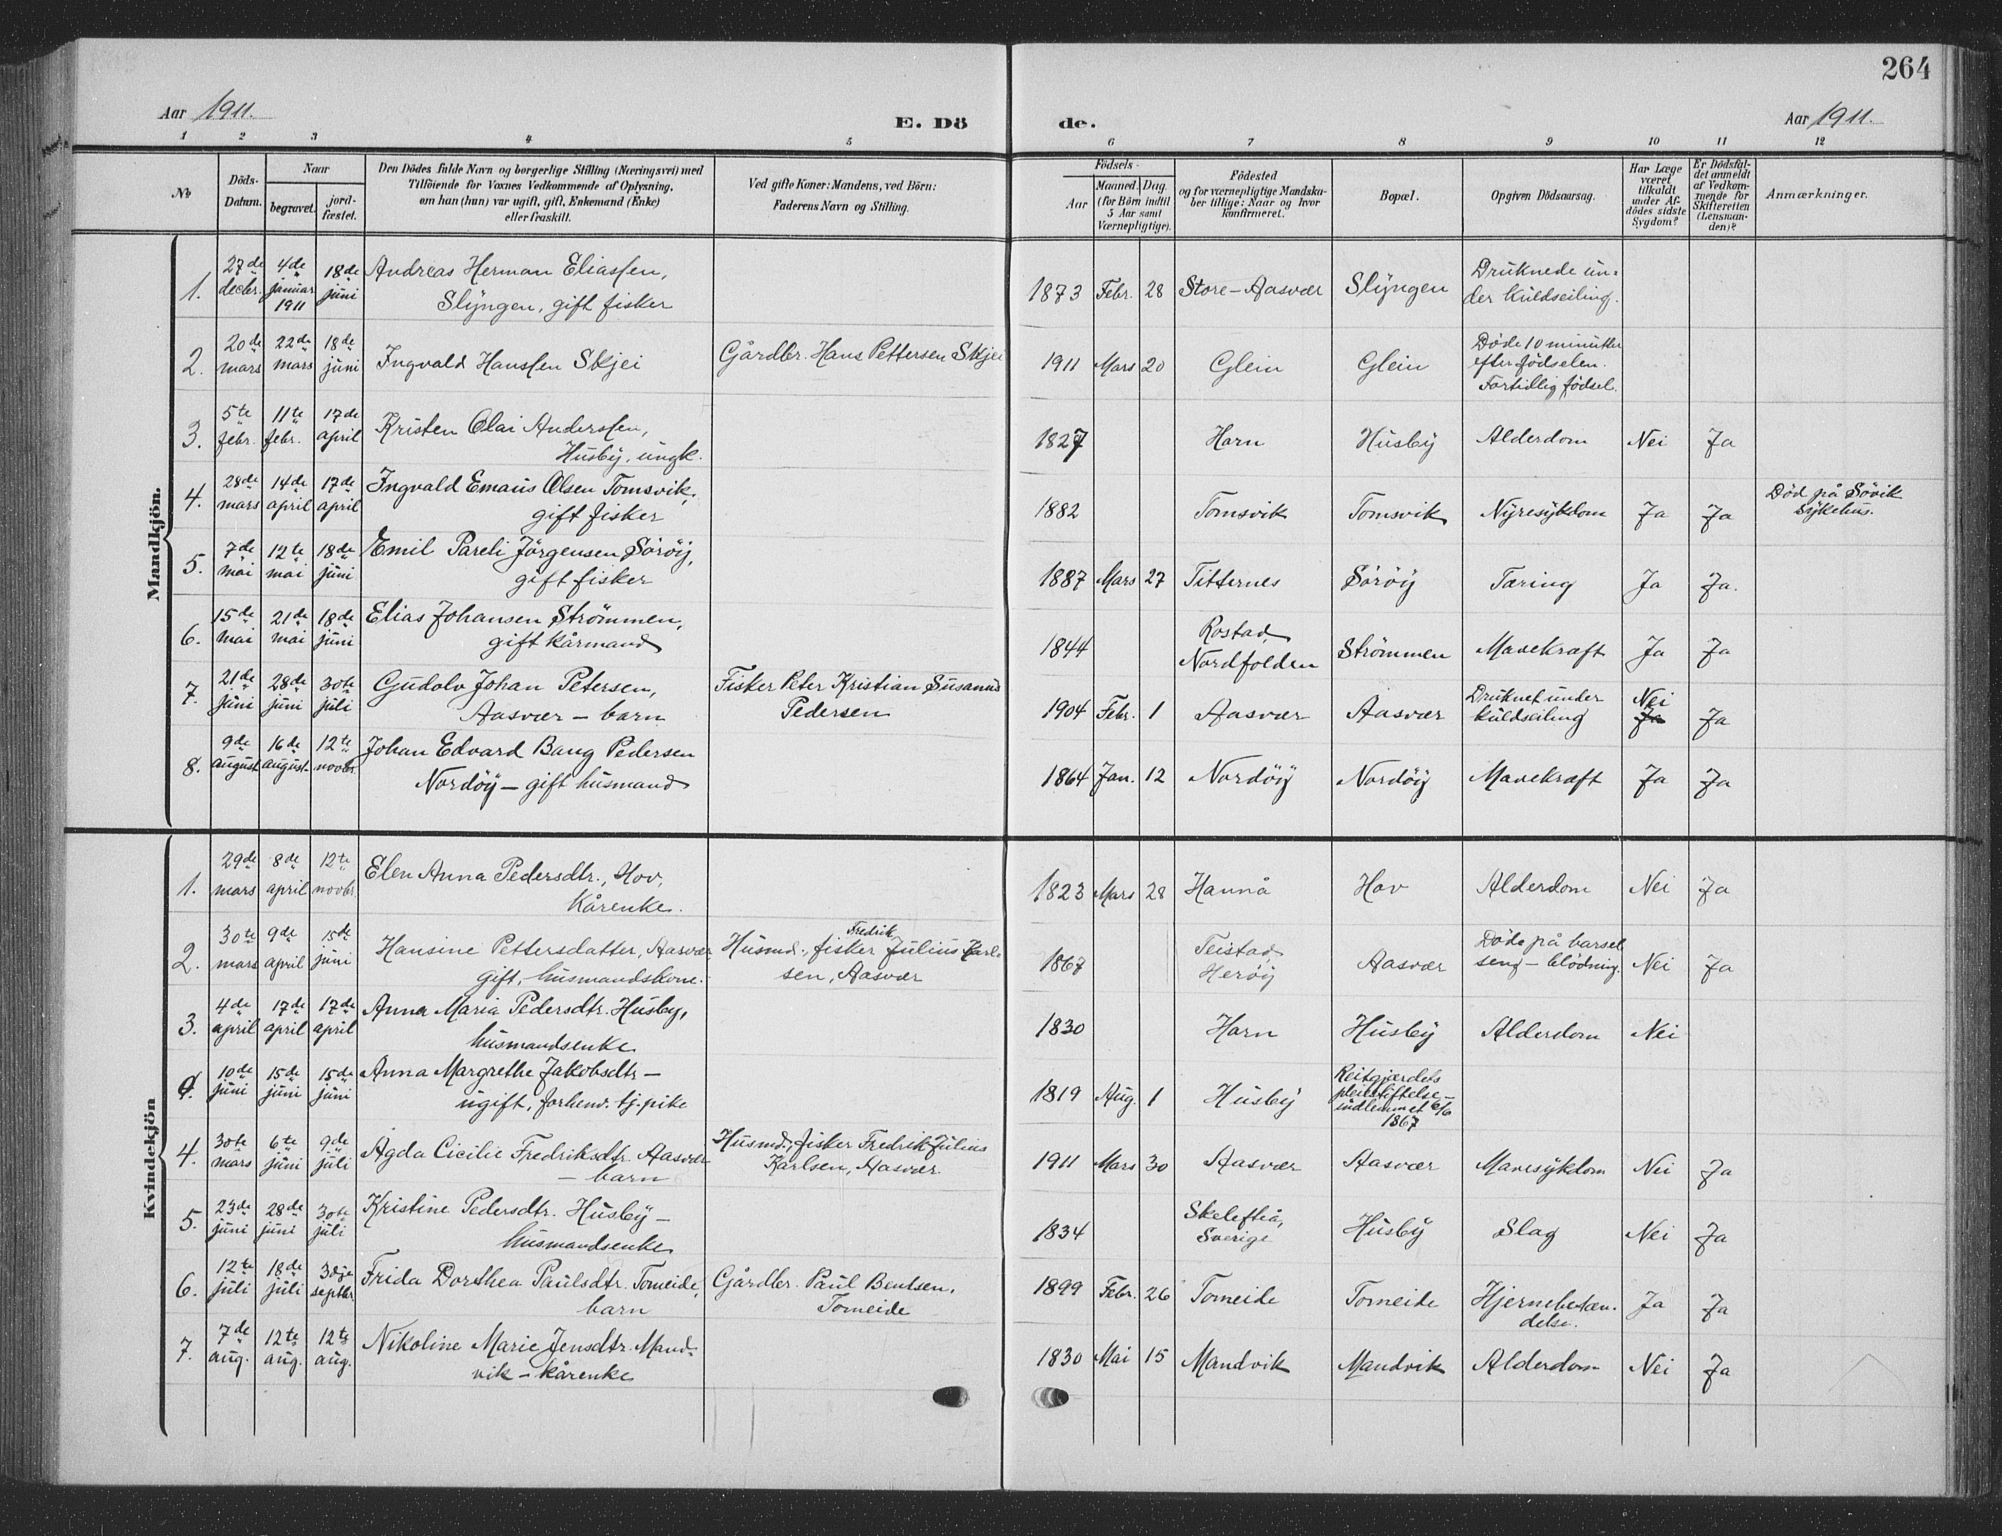 264
Aar 1911.
E. Döde.
Aar 1911.
1 2 3 4 5 6 7 8 9 10 11 12
No
Döds-Datum.
Naar
begravet.
jordfæstet.
Den Dödes fulde Navn og borgerlige Stilling (Næringsvei) med
Tilföiende for Voxnes Vedkommende af Oplysning,
om han (hun) var ugift, gift, Enkemand (Enke)
eller fraskilt.
Ved gifte Koner: Mandens, ved Börn:
Faderens Navn og Stilling.
Födsels-
Aar
Maaned. Dag.
(for Börn indtil
5 Aar samt
Værnepligtige).
Födested
og for værnepligtige Mandskaber tillige: Naar og hvor
konfirmeret.
Bopæl.
Opgiven Dödsaarsag.
Har Læge
været
tilkaldt
under Afdödes sidste
Sygdom?
Er Dödsfaldet anmeldt
af Vedkommende for
Skifteretten
(Lensmanden)?
Anmærkninger.
Mandkjön.
1. 27de decbr. 4de januar 1911 18de juni Andreas Herman Eliassen, 1873 Febr. 28 Store-Aasvær Slyngen Druknede un-
Slyngen, gift fisker der kuldseiling.
2. 20de mars 22de mars 18de juni Ingvald Hanssen Skjei Gårdbr. Hans Pettersen Skjei 1911 Mars 20 Glein Glein Døde 10 minutter
efter fødselen.
Fortidlig fødsel.
3. 5te febr. 11te febr. 17de april Kristen Olai Anderssen, 1827 Horn Husby Alderdom Nei Ja
Husby, ungk.
4. 28de mars 14de april 17de april Ingvald Emaus Olsen Tomsvik, 1882 Tomsvik Tomsvik Nyresykdom Ja Ja Død på Søvik
gift fisker sykehus.
5. 7de mai 12te mai 18de juni Emil Pareli Jørgensen Sørøy, 1887 Mars 27 Titternes Sørøy Tæring Ja Ja.
gift fisker
6. 15de mai 21de mai 18de juni Elias Johansen Strømmen, 1844 Rostad, Strømmen Mavekræft Ja Ja
gift kårmand Nordfolden
7. 21de juni 28de juni 30te juli Gudolv Johan Petersen, Fisker Peter Kristian Susanus 1904 Febr. 1 Aasvær Aasvær Druknet under Nei
Aasvær – barn Pedersen kuldseiling Ja Ja
8. 9de august 16de august 12te novbr. Johan Edvard Bang Pedersen 1864 Jan. 12 Nordøy Nordøy Mavekræft Ja Ja
Nordøy – gift husmand
Kvindekjön
1. 29de mars 8de april 12te novbr. Elen Anna Pedersdtr., Hov, 1823 Mars 28 Hannå Hov Alderdom Nei Ja
Kårenke.
2. 30te mars 9de april 15de juni Hansine Pettersdatter, Aasvær Husmd., fisker Fredrik Julius Karl- 1867 Teistad, Aasvær Døde på barsel
gift, husmandskone. sen, Aasvær Herøy seng – blødning. Nei Ja
3. 4de april 17de april 17de april Anna Maria Pedersdtr. Husby, 1830 Horn Husby Alderdom Nei
husmandsenke
4. 10de juni 15de juni 15de juni Anna Margrethe Jakobsdtr – 1819 Aug. 1 Husby Reitgjærdets
ugift, forhenv. tj. pike pleiestiftelse –
indlemmet 6/6
1867
4. 30te mars 6te juni 9de juli Agda Cicilie Fredriksdtr. Aasvær Husmd., fisker Fredrik Julius 1911 Mars 30 Aasvær Aasvær Mavesykdom Nei Ja
– barn Karlsen, Aasvær
5. 23de juni 28de juni 30te juli Kristine Pedersdtr. Husby – 1834 Skelefteå, Husby Slag Nei Ja
husmandsenke Sverige
6. 12te juli 18de juli septbr. Frida Dorthea Paulsdtr. Tomeide, Gårdbr. Paul Bentsen, 1899 Febr. 26 Tomeide Tomeide Hjernebetæn- Ja Ja
barn Tomeide delse.
7. 7de aug. 12te aug. 12te aug. Nikoline Marie Jensdtr. Mand- 1830 Mai 15 Mandvik Mandvik Alderdom Nei Ja
vik – kårenke